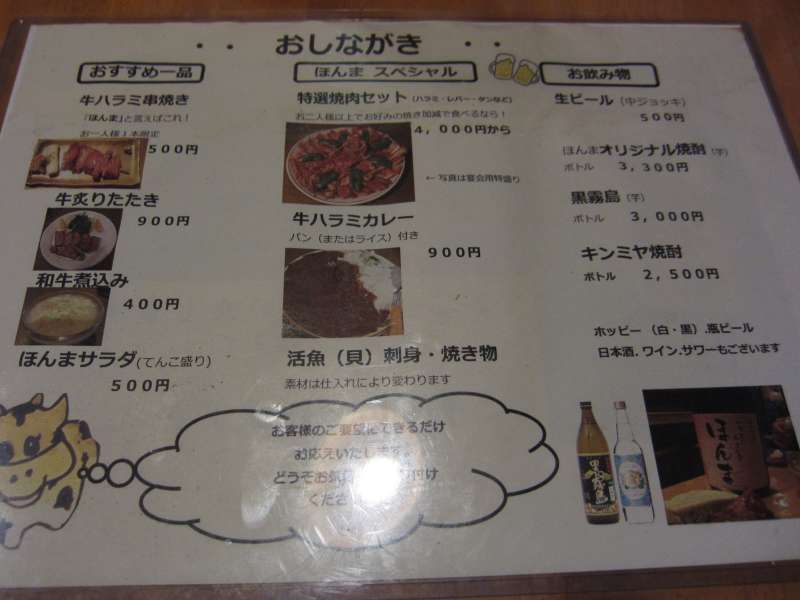 おしながき
おすすめ一品
牛ハラミ串焼き
「ほんま」と言えばこれ！
お一人様１本限定
５００円
牛炙りたたき
９００円
和牛煮込み
４００円
ほんまサラダ(てんこ盛り)
５００円
ほんま スペシャル
特選焼肉セット（ハラミ・レバー・タンなど）
お二人様以上でお好みの焼き加減で食べるなら！
４，０００円から
← 写真は宴会用特盛り
牛ハラミカレー
パン（またはライス）付き
９００円
活魚（貝）刺身・焼き物
素材は仕入れにより変わります
お飲み物
生ビール（中ジョッキ）
５００円
ほんまオリジナル焼酎（芋）
ボトル ３，３００円
黒霧島（芋）
ボトル ３，０００円
キンミヤ焼酎
ボトル ２，５００円
ホッピー（白・黒）.瓶ビール
日本酒．ワイン.サワーもございます
お客様のご要望にできるだけ
お応えいたします。
どうぞお気 付け
くださ